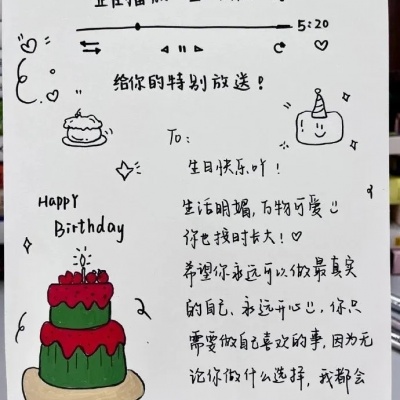 5:20
给你的特别放送！
To:
生日快乐吖！
Happy
Birthday
生活明媚，万物可爱
你也按时长大！♡
希望你永远可以做最真实
的自己、永远开心，你只
需要做自己喜欢的事，因为无
论你做什么选择，我都会